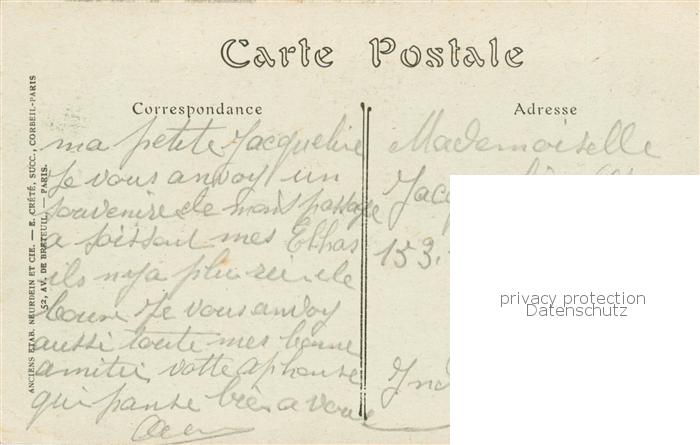 Carte Postale
Correspondance
Adresse
ma petite Jacqueline
Je vous anvoy un
souvenire de mons passage
a soissont mes Ellhas
ils n'ya plu rien de
boure Je vous anvoy
aussi toute mes bonne
amitié votte aphonse
qui panse bien a vous
Mademoiselle
153.
ANCIENS ETAB. NEURDEIN ET CIE. — E. CRÉTÉ, SUCC., CORBEIL-PARIS
52, AV. DE BRETEUIL. — PARIS.
privacy protection
Datenschutz